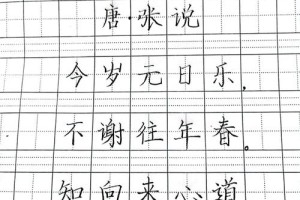 唐·张说
今岁元日乐，
不谢往年春。
知向来心道